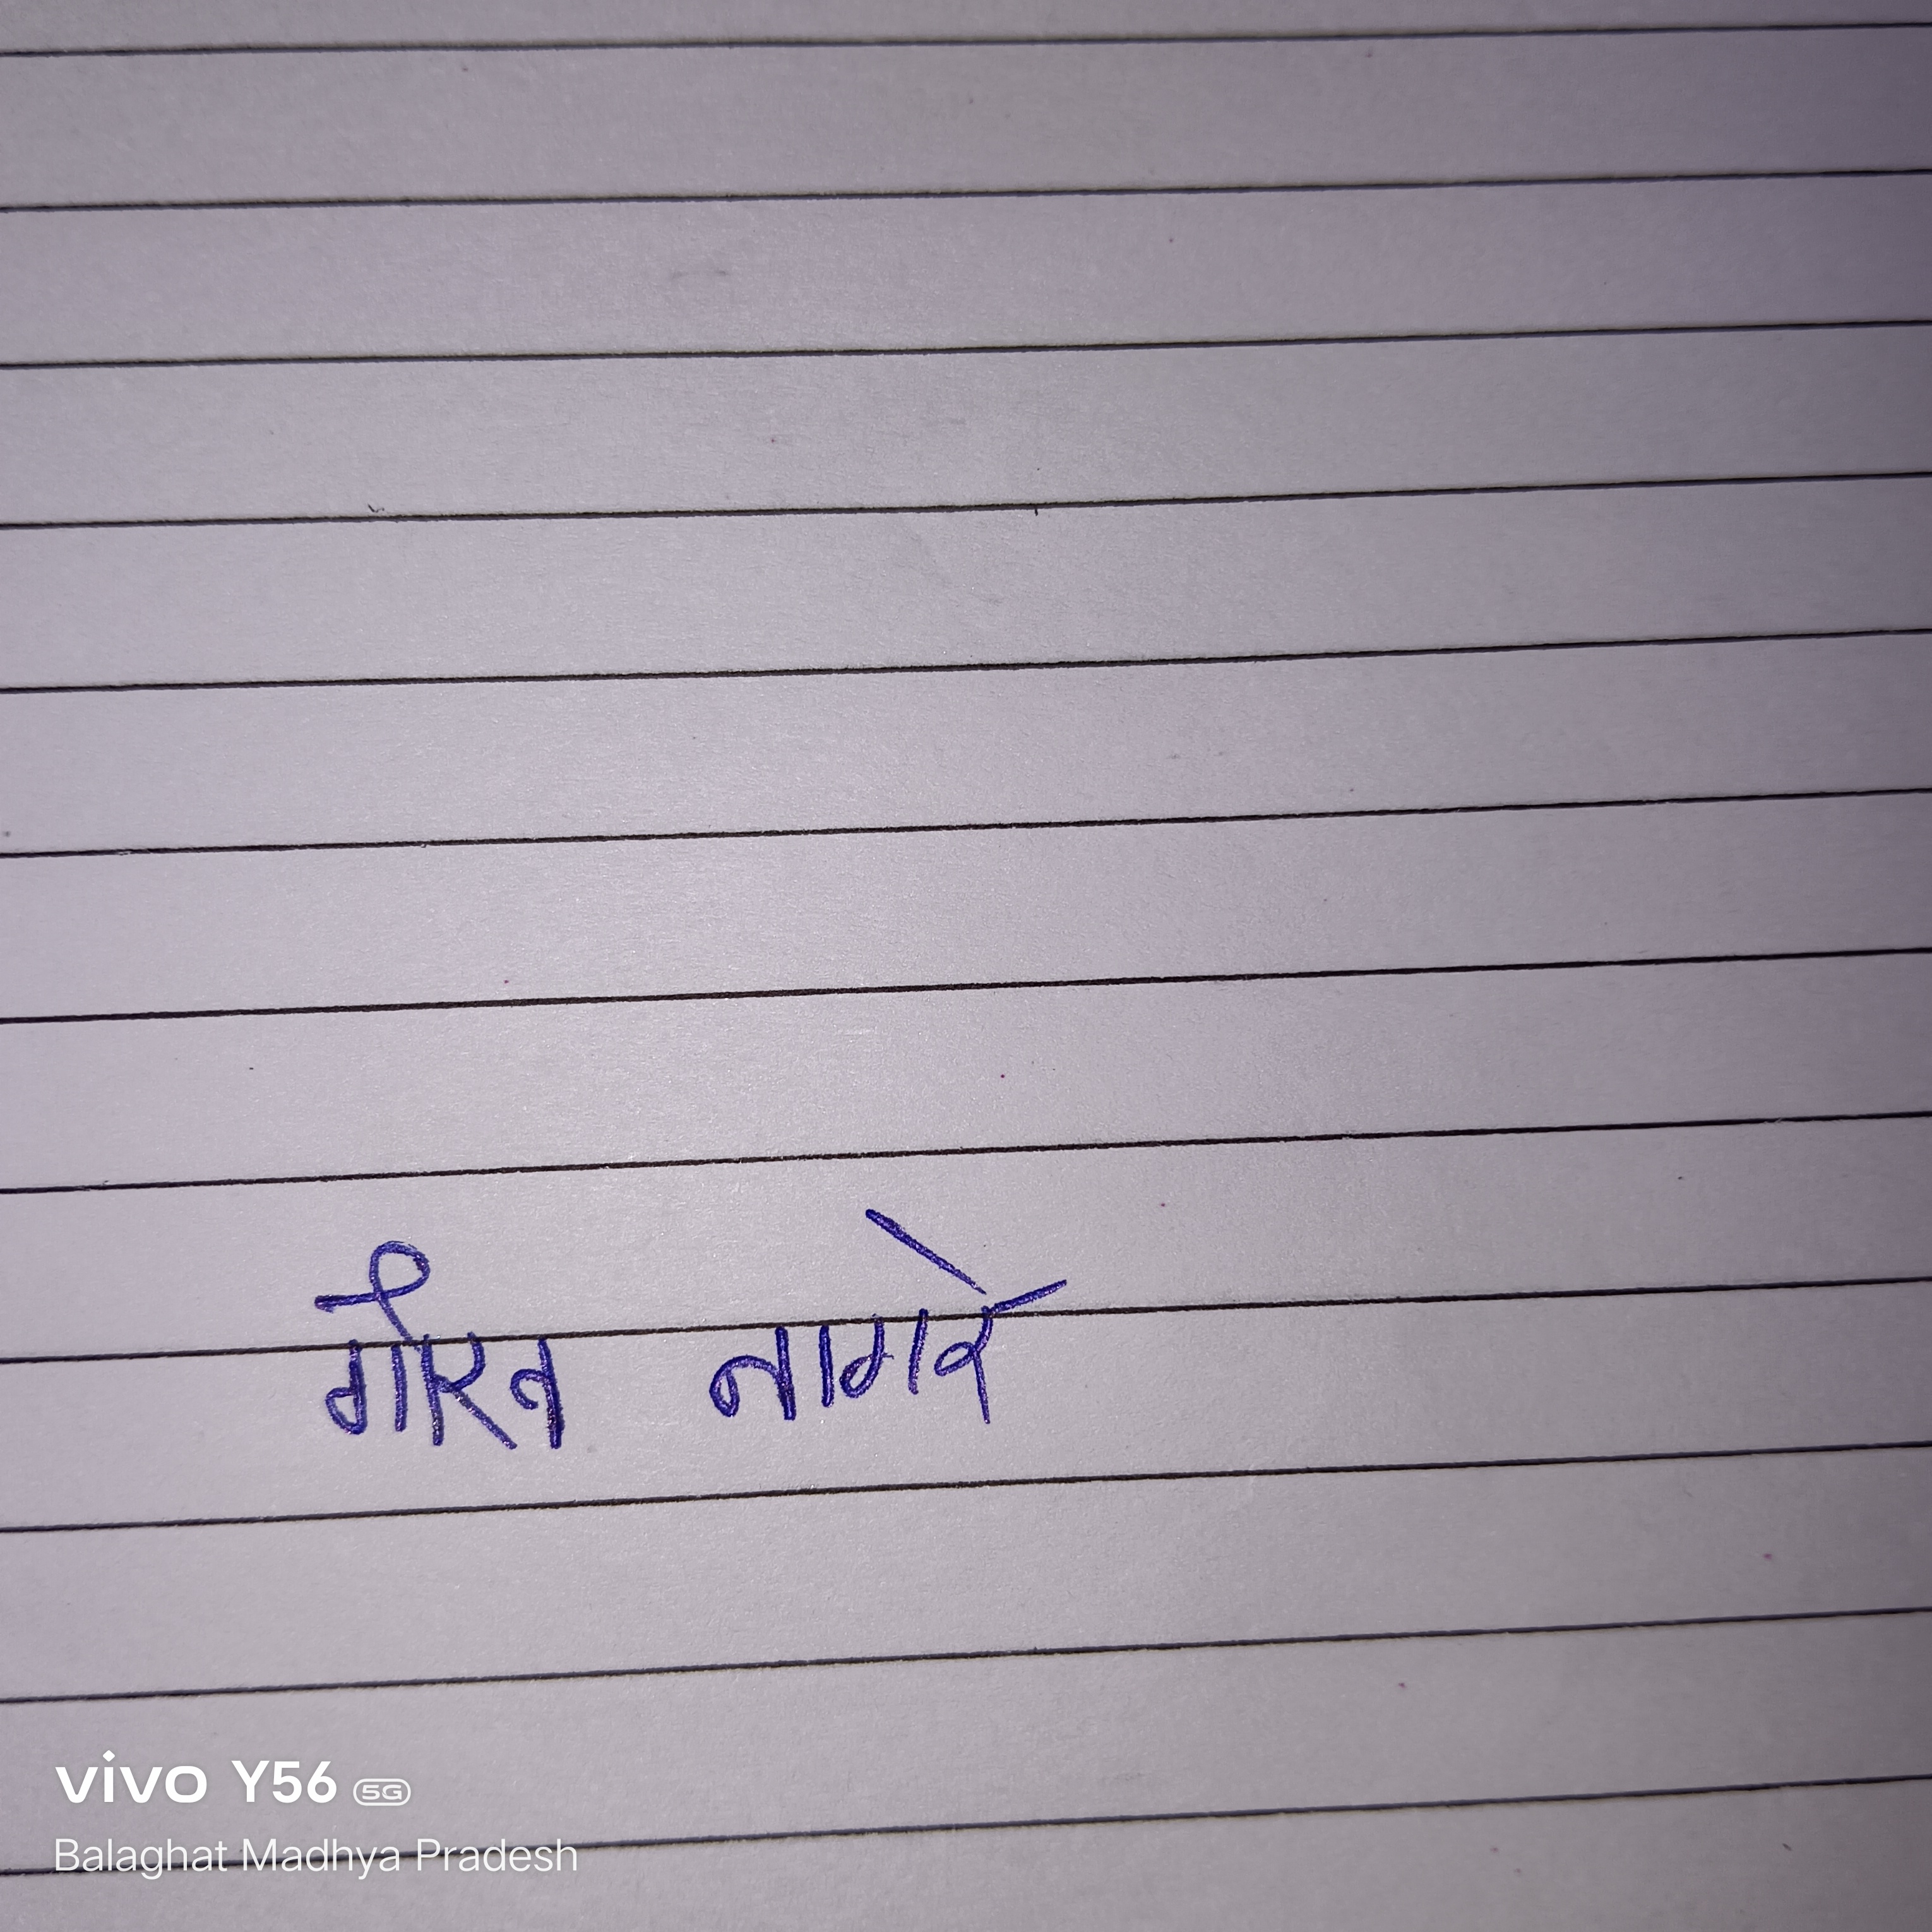 गौरव नागरे
vivo Y56 5G
Balaghat Madhya Pradesh